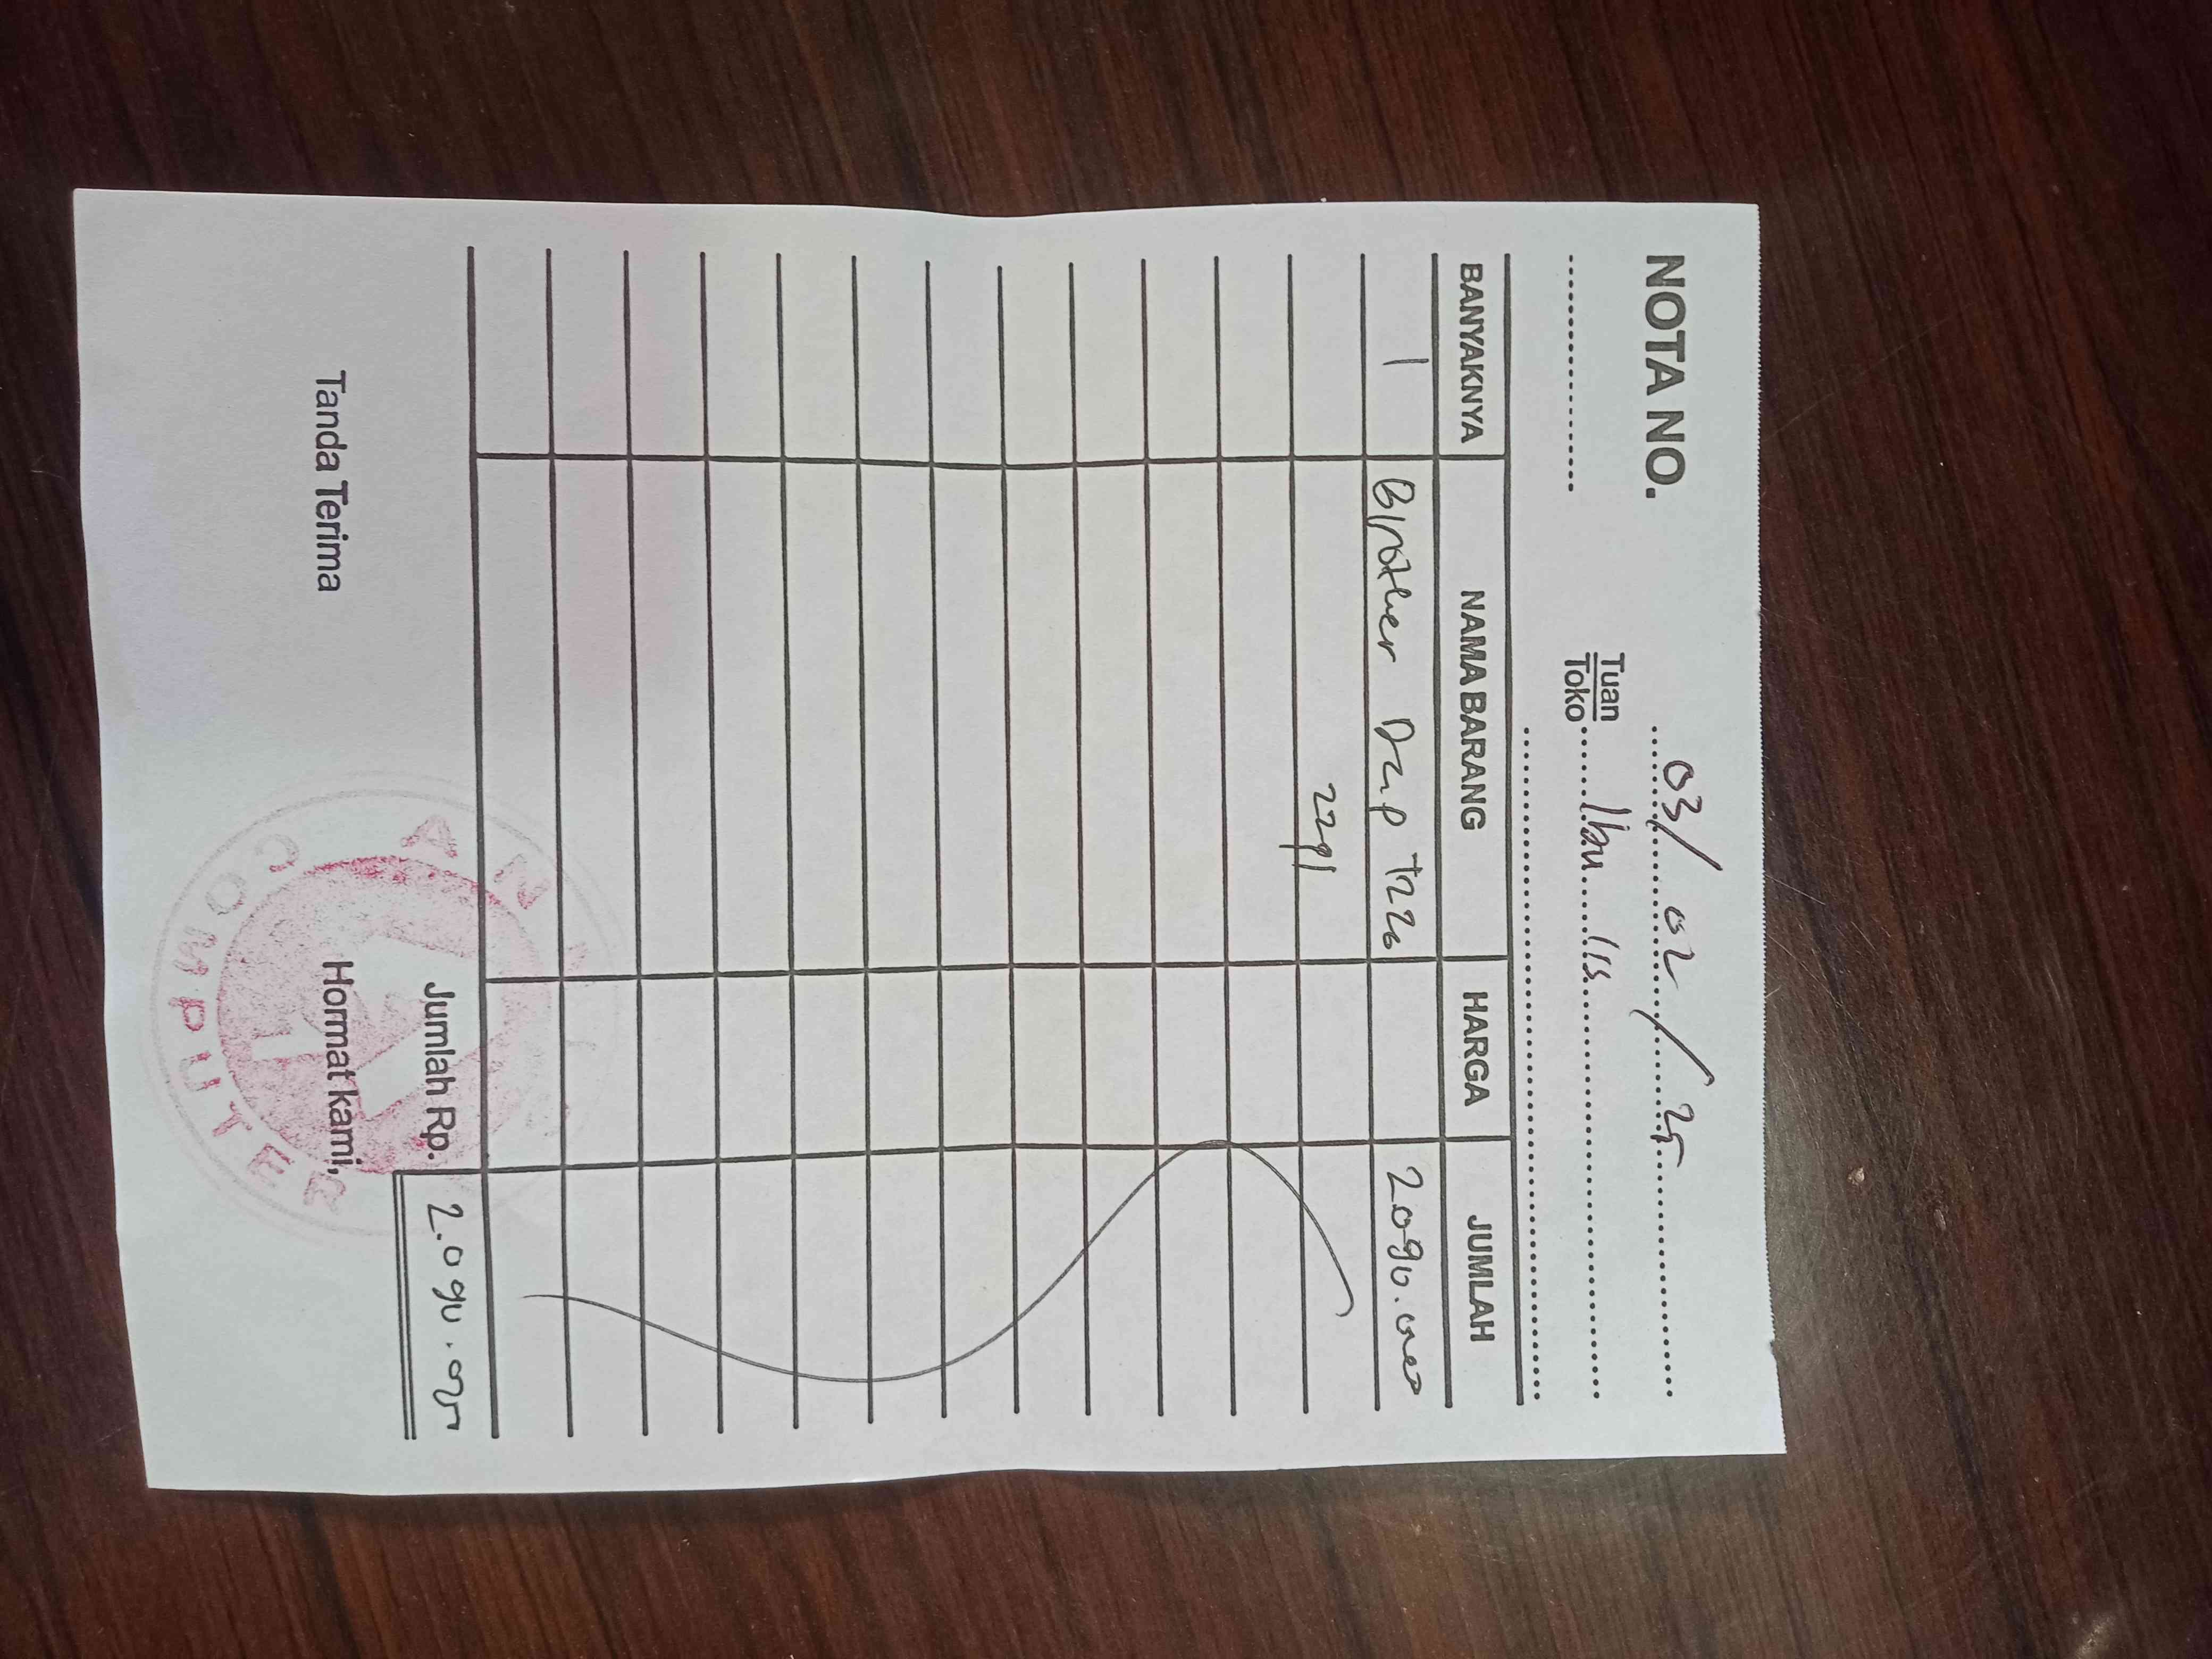 NOTA NO.
03/02/25
Tuan
Toko Ibu Iis
BANYAKNYA NAMA BARANG HARGA JUMLAH
1 Brother Dcp T220 2.090.000
2291
Jumlah Rp. 2.090.000
Tanda Terima Hormat kami,
COMPUTER